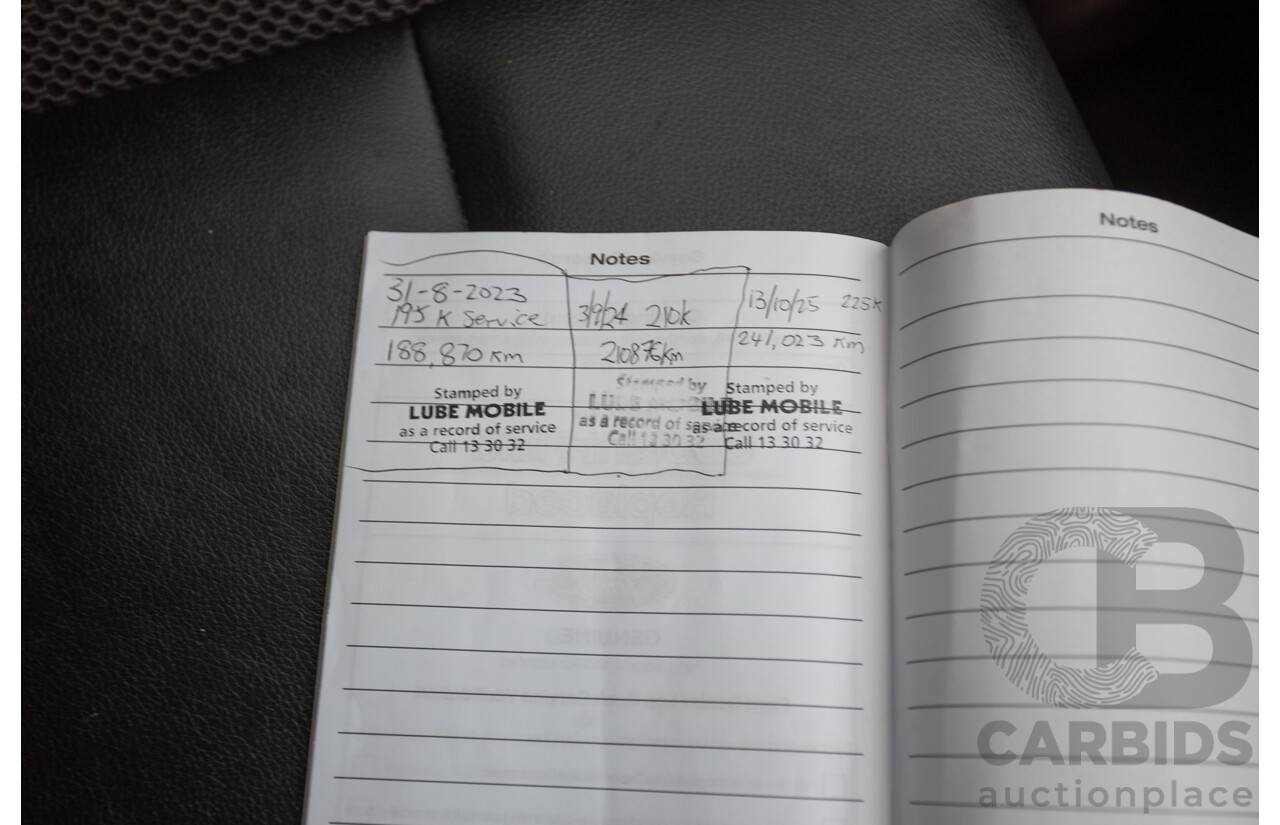 Notes
31-8-2023
195 K Service
188,870 Km
Stamped by
LUBE MOBILE
as a record of service
Call 13 30 32
3/9/24 210k
210876km
Stamped by
as a record of service
Call 13 30 32
13/10/25 225K
241,023 Km
Stamped by
LUBE MOBILE
as a record of service
Call 13 30 32
Notes
CB
CARBIDS
auctionplace